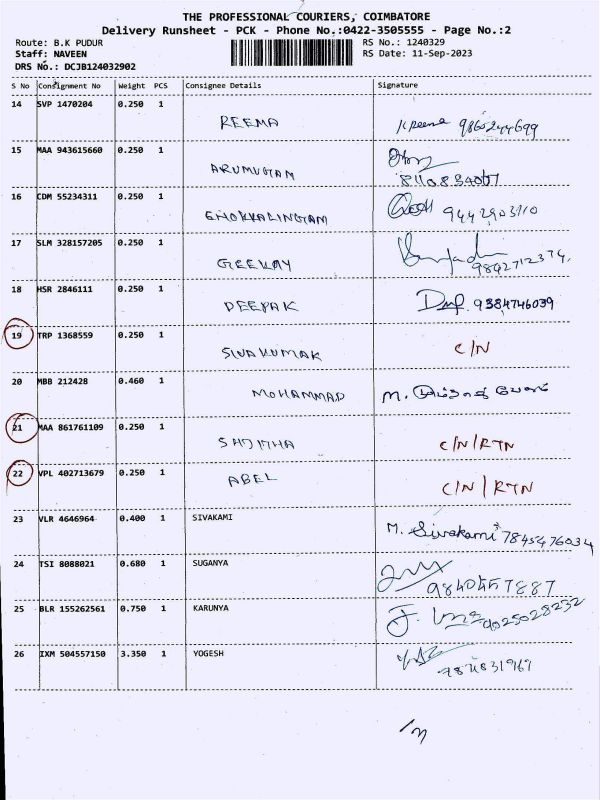 THE PROFESSIONAL COURIERS, COIMBATORE
Delivery Runsheet - PCK - Phone No.:0422-3505555 - Page No.:2
Route: B.K PUDUR RS No.: 1240329
Staff: NAVEEN RS Date: 11-Sep-2023
DRS No.: DCJB124032902
S No Consignment No Weight PCS Consignee Details Signature
14 SVP 1470204 0.250 1
REEMA
15 MAA 943615660 0.250 1
ARUMUGAM
16 CDM 55234311 0.250 1
CHOKKALINGAM 9442903110
17 SLM 328157205 0.250 1
GEEKAY 9842712374
18 HSR 2846111 0.250 1
DEEPAK 9384746039
19 TRP 1368559 0.250 1
SIVAKUMAR C/N
20 MBB 212428 0.460 1
MOHAMMAD M.
21 MAA 861761109 0.250 1
C/N/RTN
22 VPL 402713679 0.250 1
ABEL C/N/RTN
23 VLR 4646964 0.400 1 SIVAKAMI
M. Sivakami 7845476034
24 TSI 8088021 0.680 1 SUGANYA
25 BLR 155262561 0.750 1 KARUNYA
9025028232
26 IXM 504557150 3.350 1 YOGESH